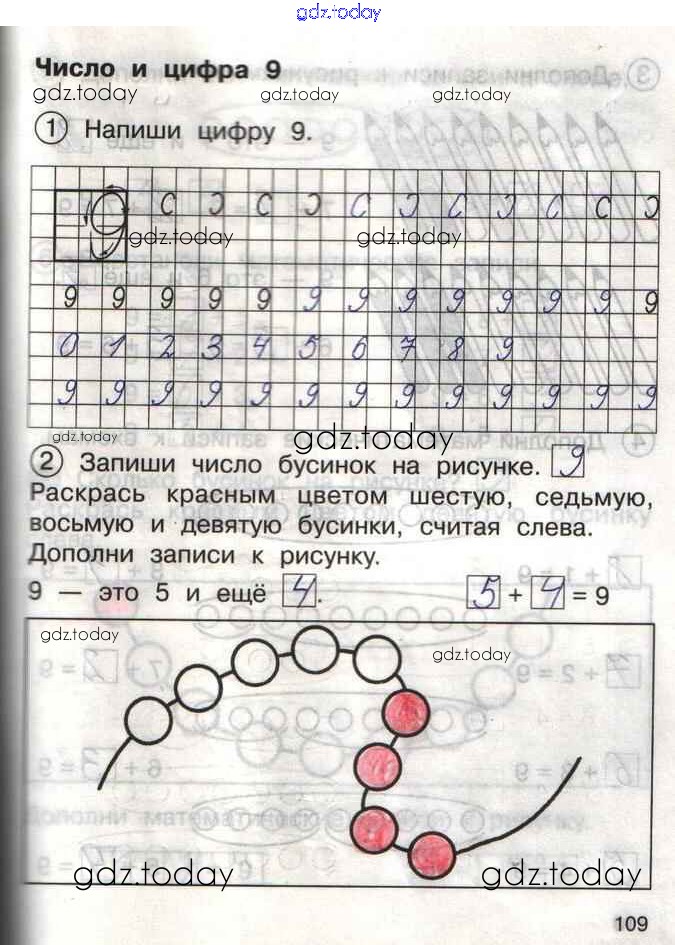 gdz.today
Число и цифра 9
gdz.today gdz.today gdz.today
1 Напиши цифру 9.
9 С Э С Э С Э С Э С С Э
gdz.today gdz.today
9 9 9 9 9 9 9 9 9 9 9 9 9
0 1 2 3 4 5 6 7 8 9
9 9 9 9 9 9 9 9 9 9 9 9 9
gdz.today gdz.today
2 Запиши число бусинок на рисунке. 9
Раскрась красным цветом шестую, седьмую,
восьмую и девятую бусинки, считая слева.
Дополни записи к рисунку.
9 — это 5 и ещё 4. 5 + 4 = 9
gdz.today gdz.today
gdz.today gdz.today
109